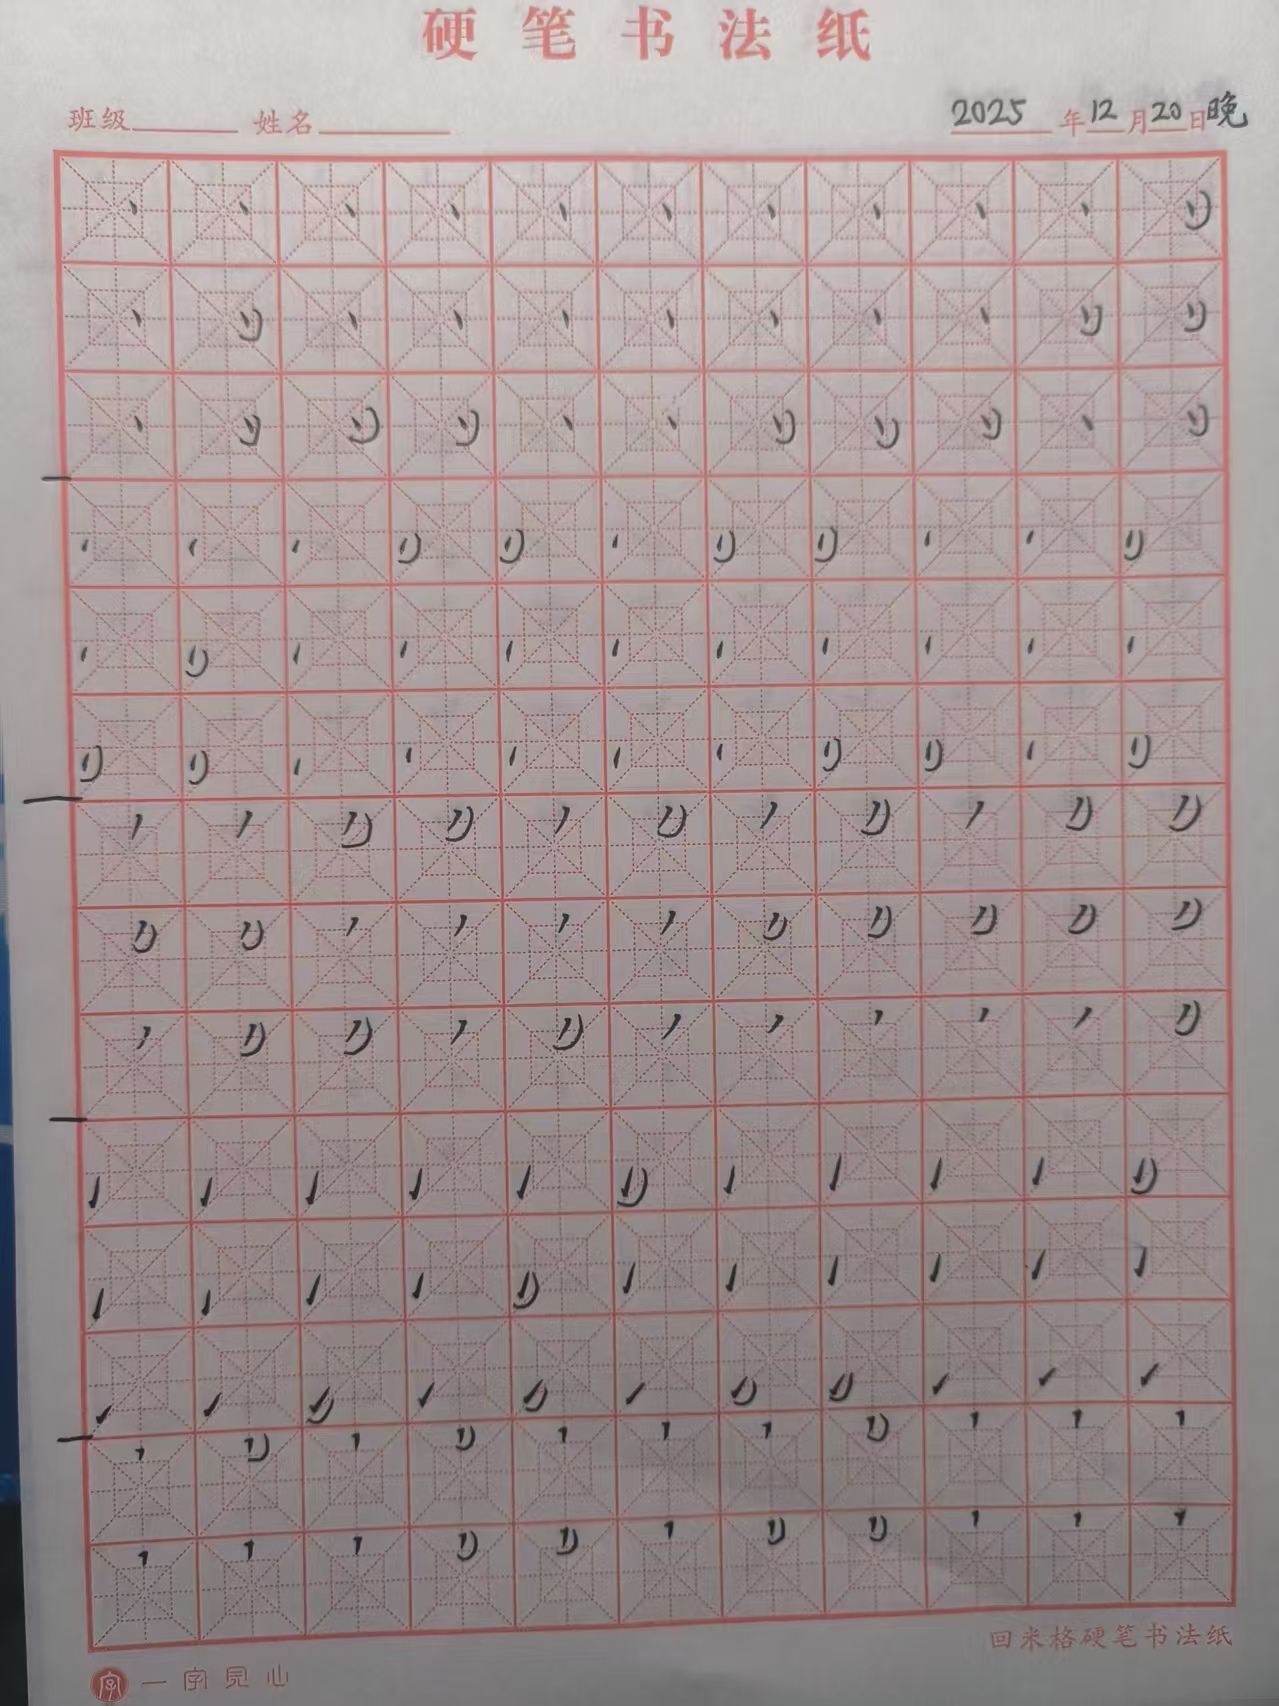 硬笔书法纸
班级 姓名 2025年12月20日晚
回米格硬笔书法纸
字 一字见心